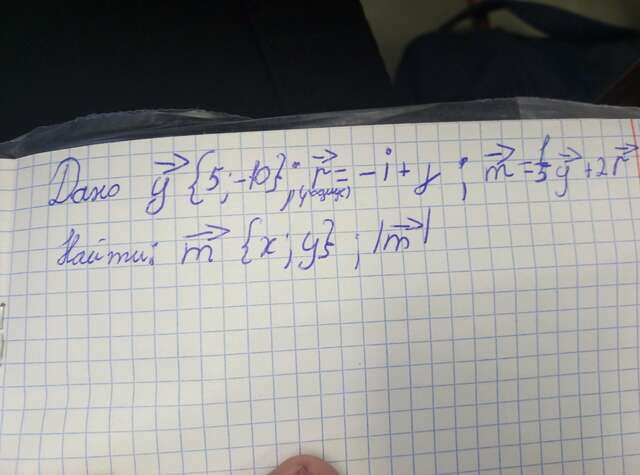 Дано y⃗ {5; -10}; r⃗ = -i + j; m⃗ = 1/5 y⃗ + 2r⃗
Найти: m⃗ {x; y}; |m⃗|